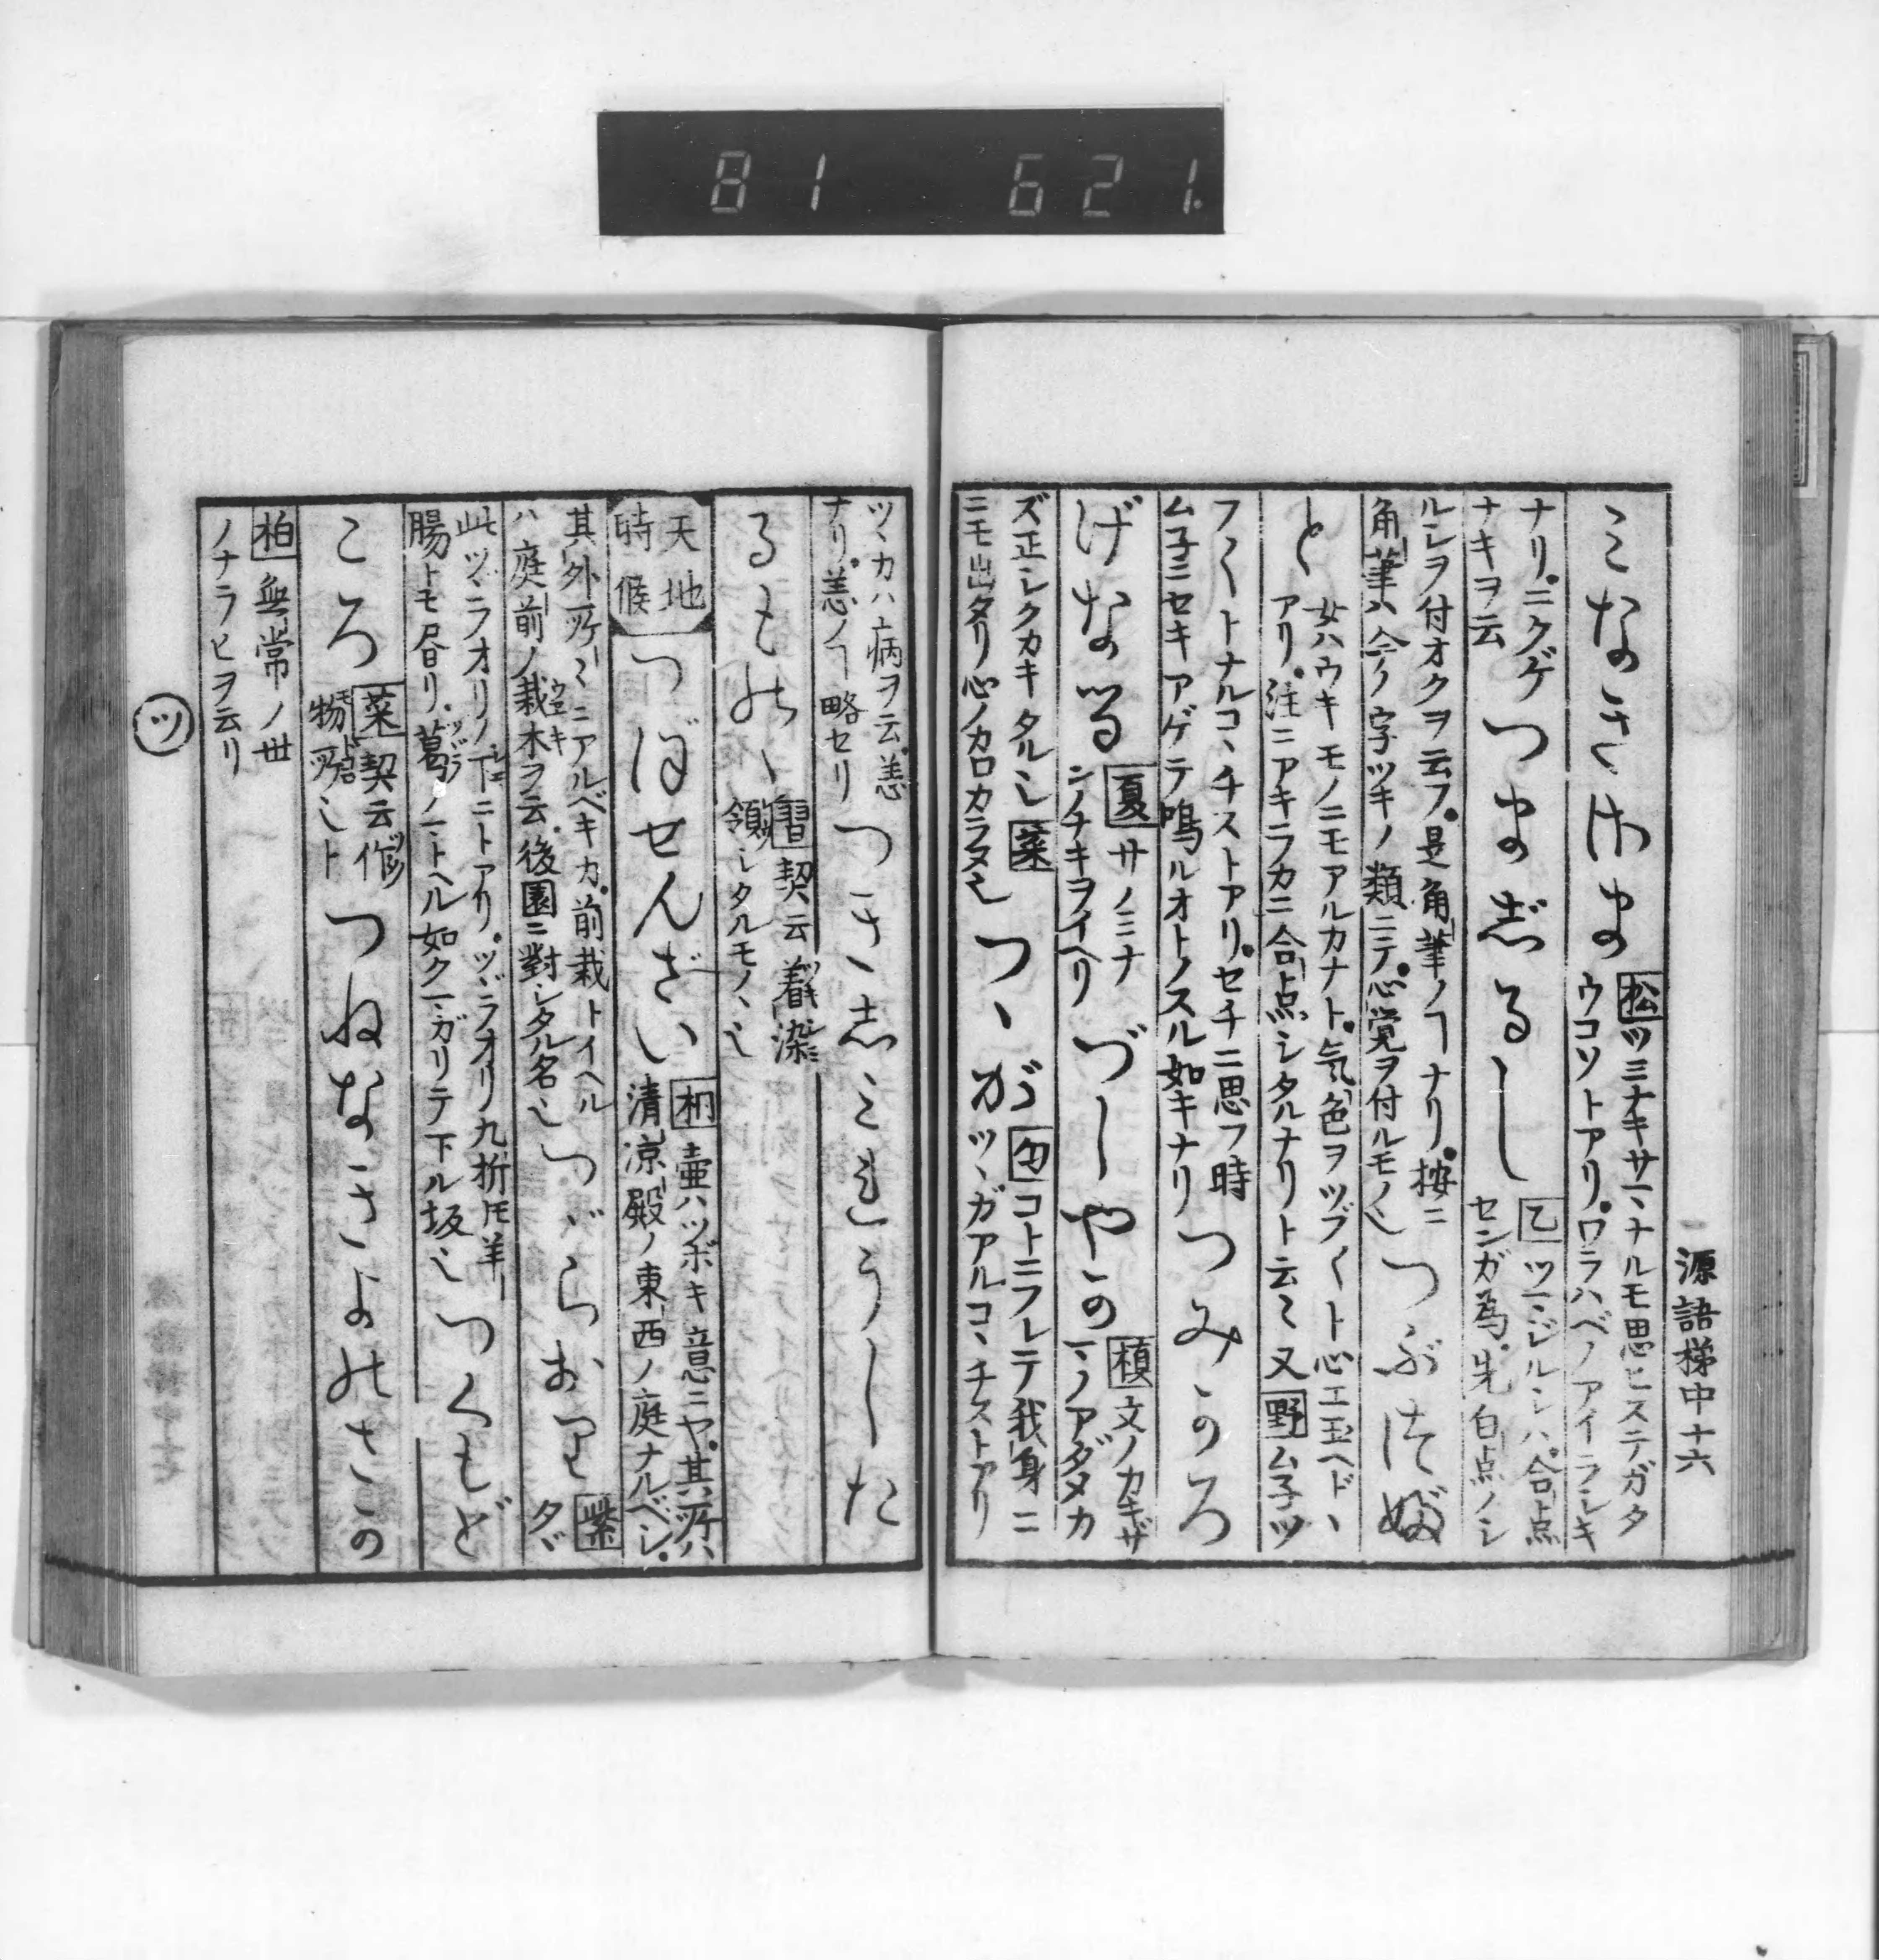 81 621.
源語梯中十六
ミなきさまの 松 ツミナキサマナルモ思ヒステガタ
ウコソトアリ。ワラハベノアイラシキ
ナリ。ニクゲ
ナキヲ云
つまじるし 乙 ツマジルシハ。合点
センガ為。先白点ノシ
ルシヲ付オクヲ云フ。是角筆ノヿナリ。按ニ
角筆ハ今ノ字ツキノ類ニテ。心覚ヲ付ルモノ也
つぶつぶ
と 女ハウキモノニモアルカナト。気色ヲツブ〱ト心エ玉ヘド、
アリ。注ニアキラカニ合点シタルナリト云〻又 野 ムネツ
フ〱トナルコ、チストアリ。セチニ思フ時
ムネニセキアゲテ鳴ルオトノスル如キナリ
つみのろ
げなる 夏 サノミナ
シナキヲイヘリ
づしやかの 槙 文ノカキザ
マノアダメカ
ズ正シクカキタルシ 菜
ニモ出タリ心ノカロカラヌ也
つゝが 匂 コトニフレテ我身ニ
ツヽガアルコヽチストアリ
ツヽカハ病ヲ云。恙
ナリ。恙ノヿ略セリ
つきしミれうした
るもの、 習 契云着染
領シタルモノヽ也
天地
時候
つぼせんざい 桐 壷ハツボキ意ニヤ。其所ハ
清凉殿ノ東西ノ庭ナルベシ。
其外所〻ニアルベキカ。前栽トイヘル
ハ庭前ノ栽木ヲ云。後園ニ對シタル名也
つゞらおり 紫
タヾ
此ツヾラオリノ下ニトアリ。ツヾラオリ九折トモ羊
腸トモ昼リ。葛ノマトヘル如クマガリテ下ル坂也
つくもど
ころ 菜 契云作
物所也ト
つねなきよのさこの
柏 無常ノ世
ノナラヒヲ云リ
ツ